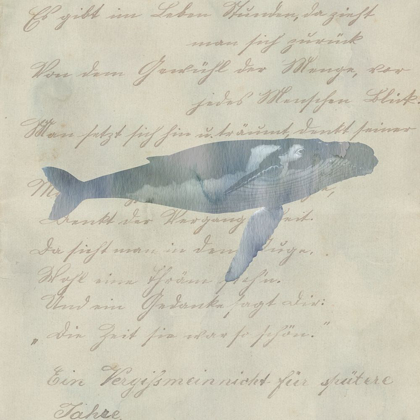 Es gibt im Leben Stunden, da zieht
man sich zurück
Von dem Gewühl der Menge, vor
jedes Menschen Blick.
Man setzt sich hin u. träumt, denkt seiner
Denkt der Vergangenheit,
Da sieht man in dem Auge,
Wohl eine Thräne
Und ein Gedanke sagt dir:
„Die Zeit sie war so schön."
Ein Vergißmeinnicht für spätere
Jahre